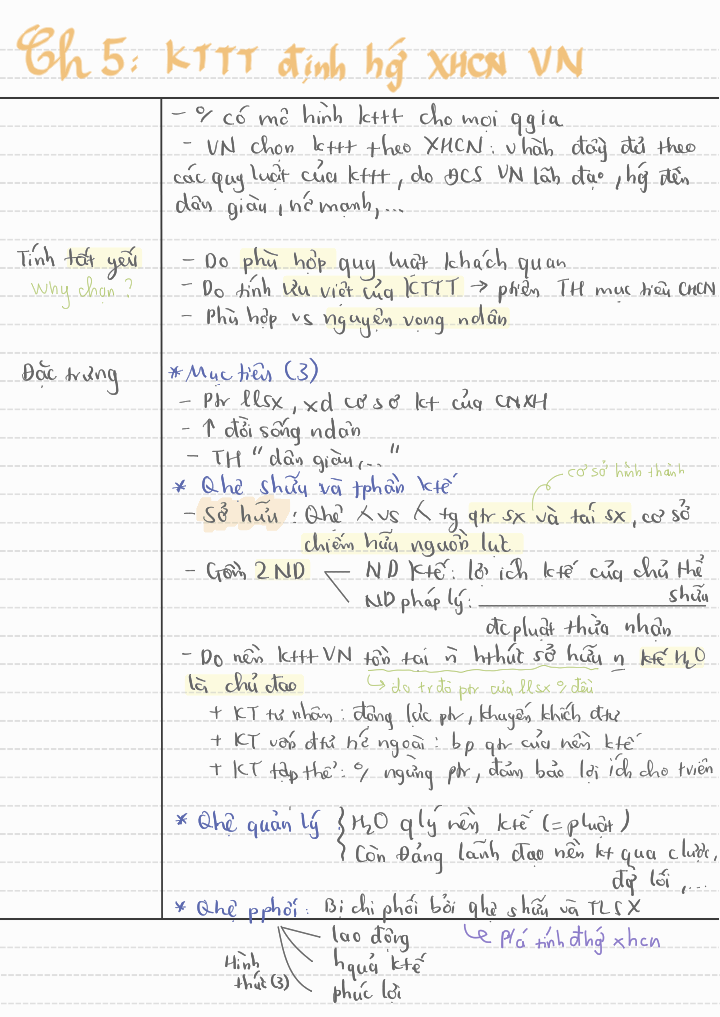 Ch 5: KTTT định hg XHCN VN
- % có mô hình kttt cho mọi qgia
- VN chọn kttt theo XHCN: vhành đầy đủ theo
các quy luật của kttt, do ĐCS VN lãnh đạo, hg đến
dân giàu, nc mạnh,...
Tính tất yếu
why chọn?
- Do phù hợp quy luật khách quan
- Do tính ưu việt của KTTT → ptiện TH mục tiêu CNCN
- Phù hợp vs nguyện vọng ndân
Đặc trưng
* Mục tiêu (3)
- Ptr llsx, xd cơ sở kt của CNXH
- ↑ đời sống ndân
- TH "dân giàu,..."
* Qhệ shữu và tphần ktế
cơ sở hình thành
- Sở hữu: Qhệ λ vs λ tg qtr sx và tái sx, cơ sở
chiếm hữu nguồn lực
- Gồm 2 ND
ND ktế: lợi ích ktế của chủ thể
shữu
ND pháp lý:
đc pluật thừa nhận
- Do nền kttt VN tồn tại ñ hthức sở hữu n ktế H₂O
là chủ đạo
↳ do trđộ ptr của llsx % đều
+ KT tư nhân: động lực ptr, khuyến khích đtư
+ KT vốn đtư nc ngoài: bp qtr của nền ktế
+ KT tập thể: % ngừng ptr, đảm bảo lợi ích cho tviên
* Qhệ quản lý { H₂O qlý nền ktế (= pluật)
Còn Đảng lãnh đạo nền kt qua clược,
đg lối,...
* Qhệ pphối: Bị chi phối bởi qhệ shữu và TLSX
↳ Plá tính đhg xhcn
Hình
thức (3)
lao động
hquả ktế
phúc lợi